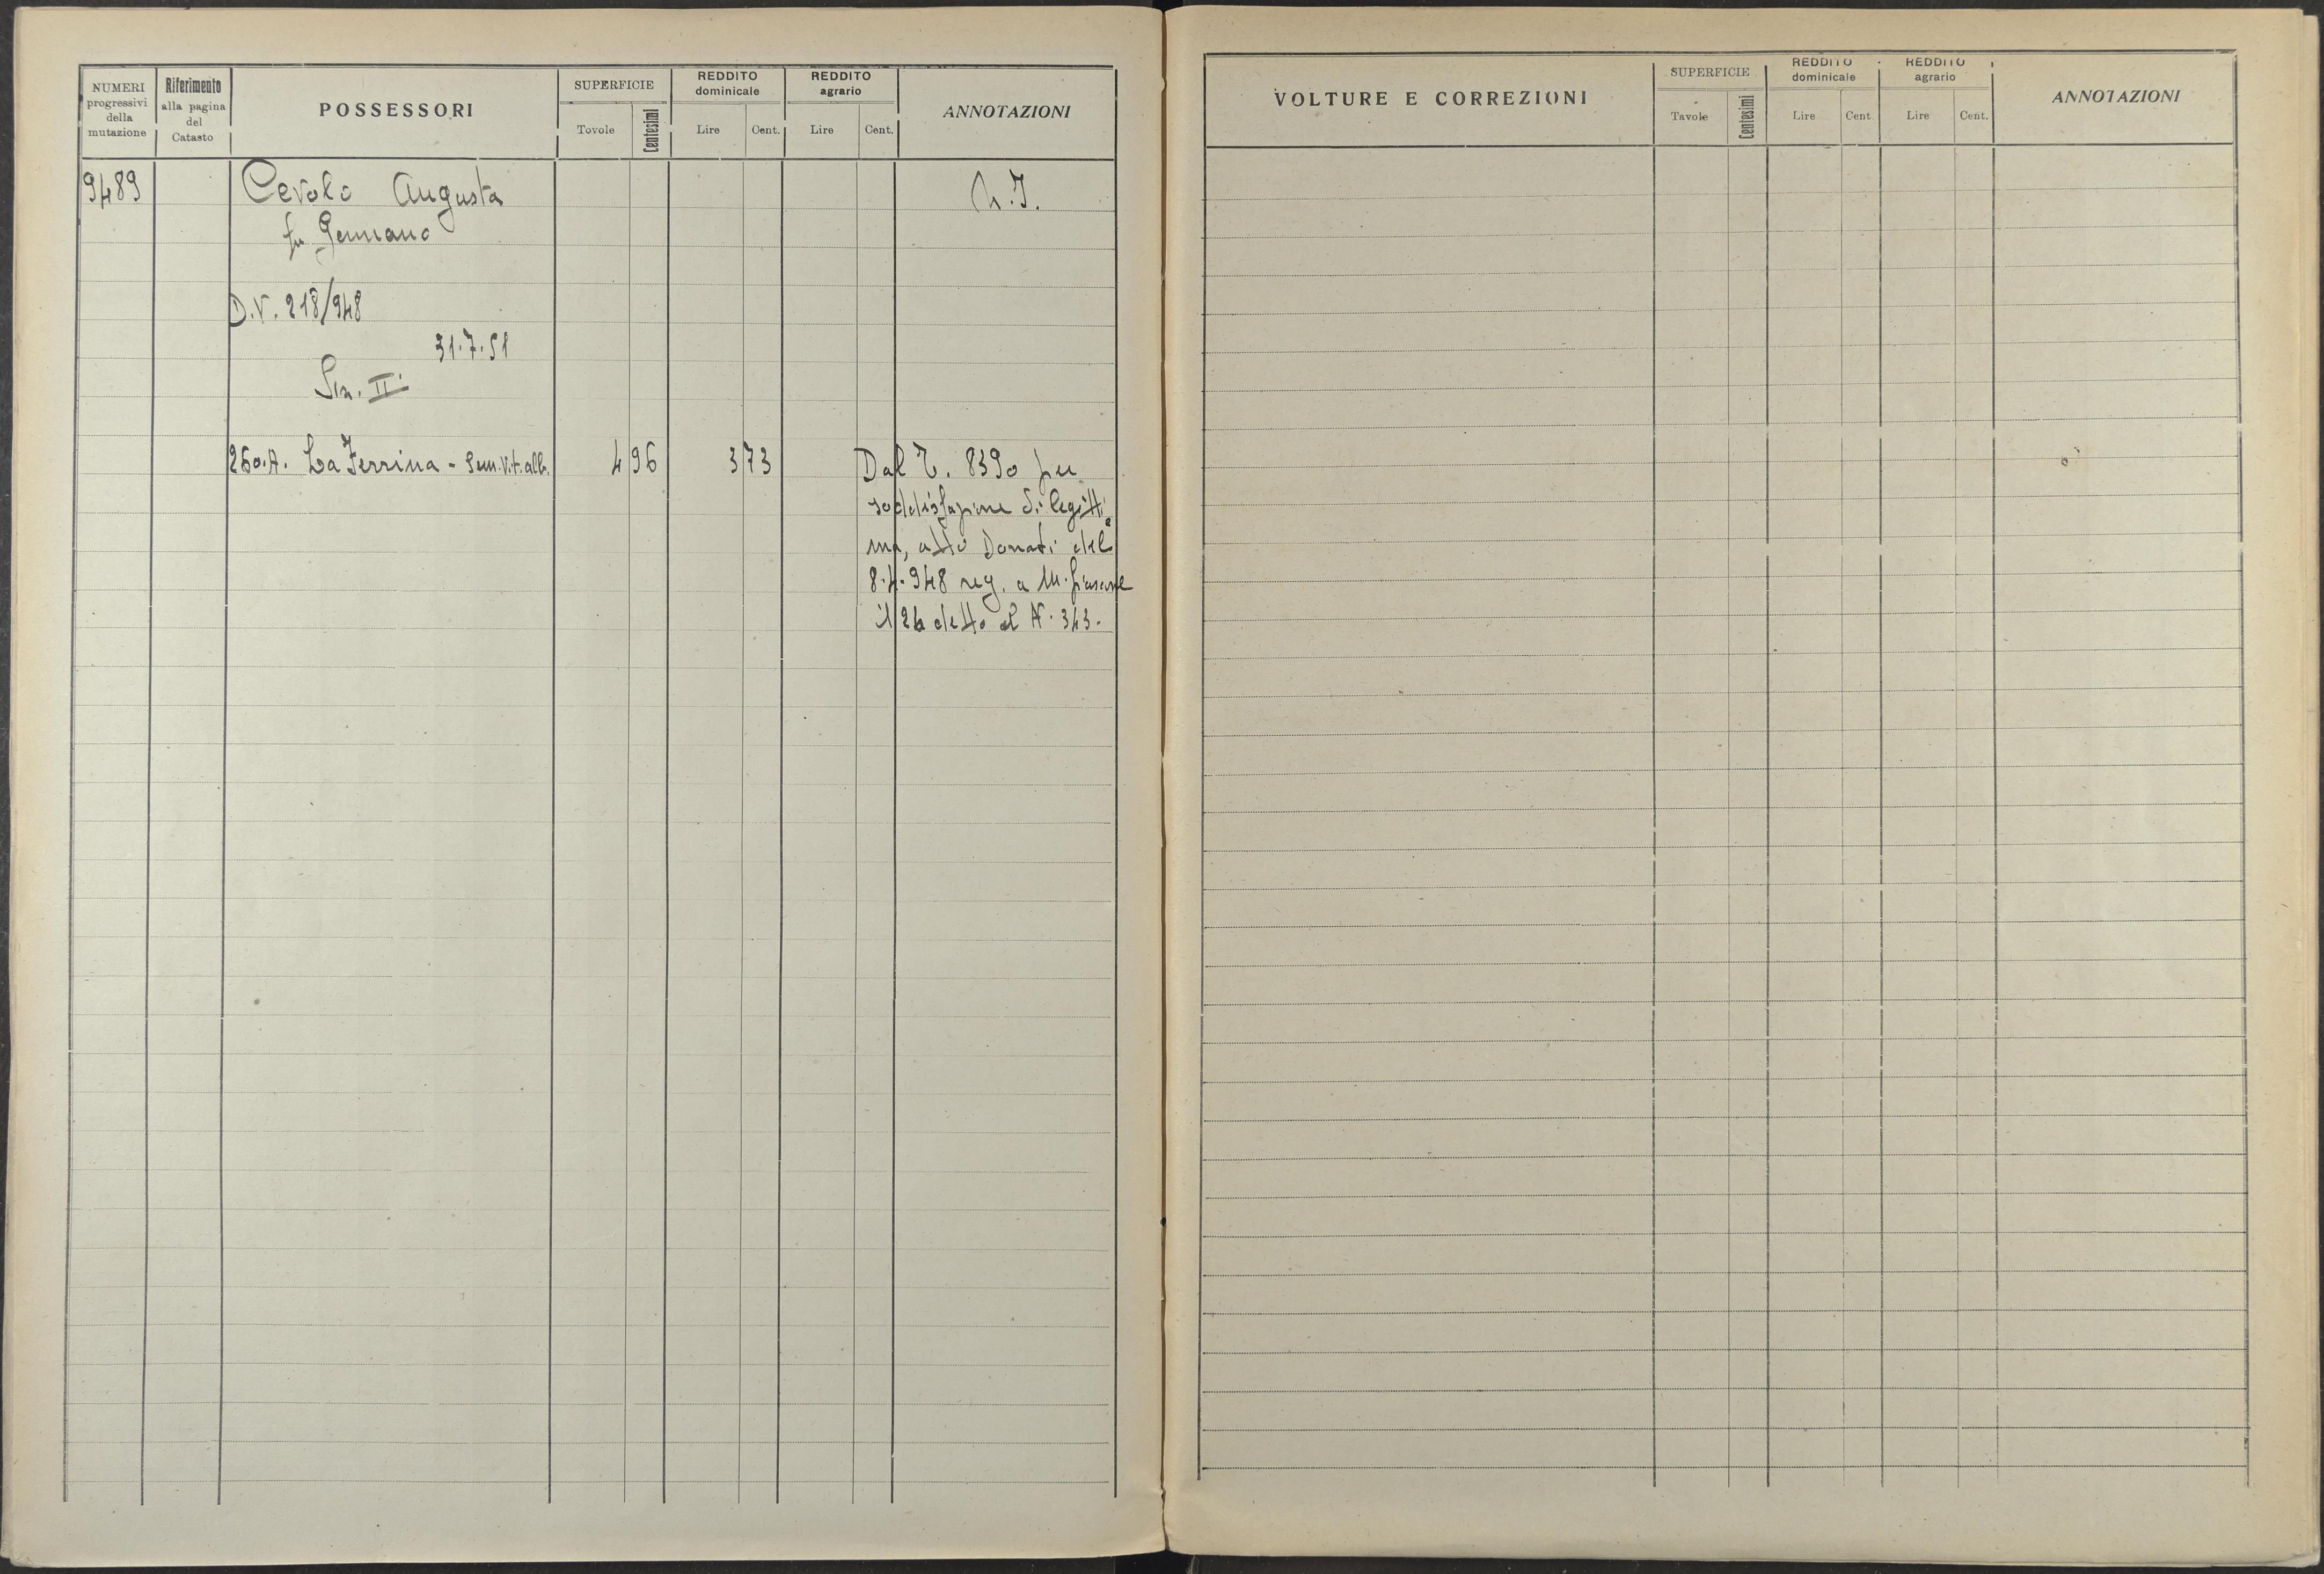 NUMERI progressivi della mutazione
Riferimento alla pagina del Catasto
POSSESSORI
SUPERFICIE
Tovole
Centesimi
REDDITO dominicale
Lire
Cent.
REDDITO agrario
Lire
Cent.
ANNOTAZIONI
9489 Cevolo Augusta
fu Germano
D.V. 218/948
31.7.51
Sez. II
260.A. La Ferrina - Sem.v.t.alb. 4 96 3 73 Dal T. 8390 per
soddisfazione di legitti
ma, atto Donati del
8.4.948 reg. a M.
il 26 detto al N. 343.
VOLTURE E CORREZIONI
SUPERFICIE
Tavole
Centesimi
REDDITO dominicale
Lire
Cent
REDDITO agrario
Lire
Cent.
ANNOTAZIONI